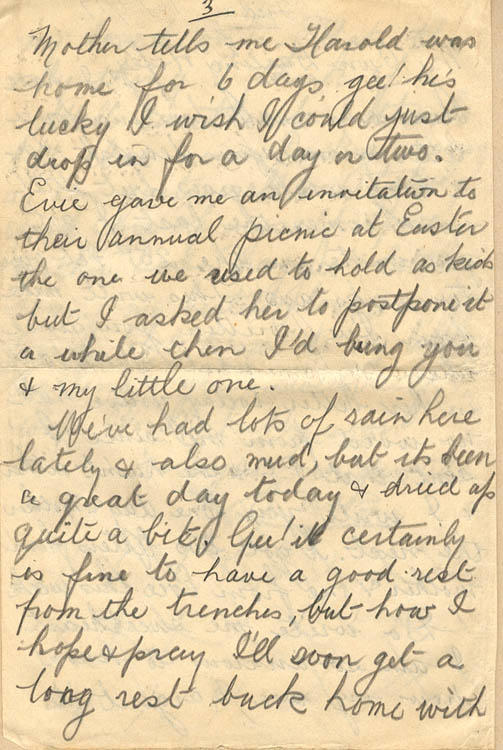 3
Mother tells me Harold was
home for 6 days, gee! his
lucky I wish I could just
drop in for a day or two.
Evie gave me an invitation to
their annual picnic at Easter
the one we used to hold as kids
but I asked her to postpone it
a while then I'd bring you
& my little one.
We've had lots of rain here
lately & also mud, but its been
a great day today & dried up
quite a bit. Gee! it certainly
is fine to have a good rest
from the trenches, but how I
hope & pray I'll soon get a
long rest back home with